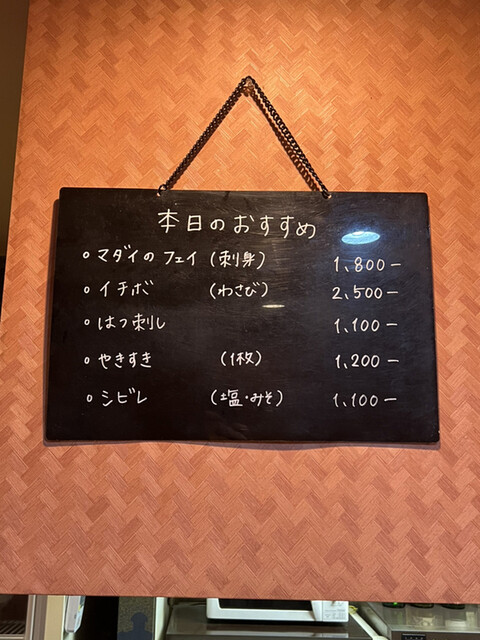 本日のおすすめ
○マダイのフェイ (刺身) 1,800-
○イチボ (わさび) 2,500-
○はつ刺し 1,100-
○やきすき (1枚) 1,200-
○シビレ (塩・みそ) 1,100-